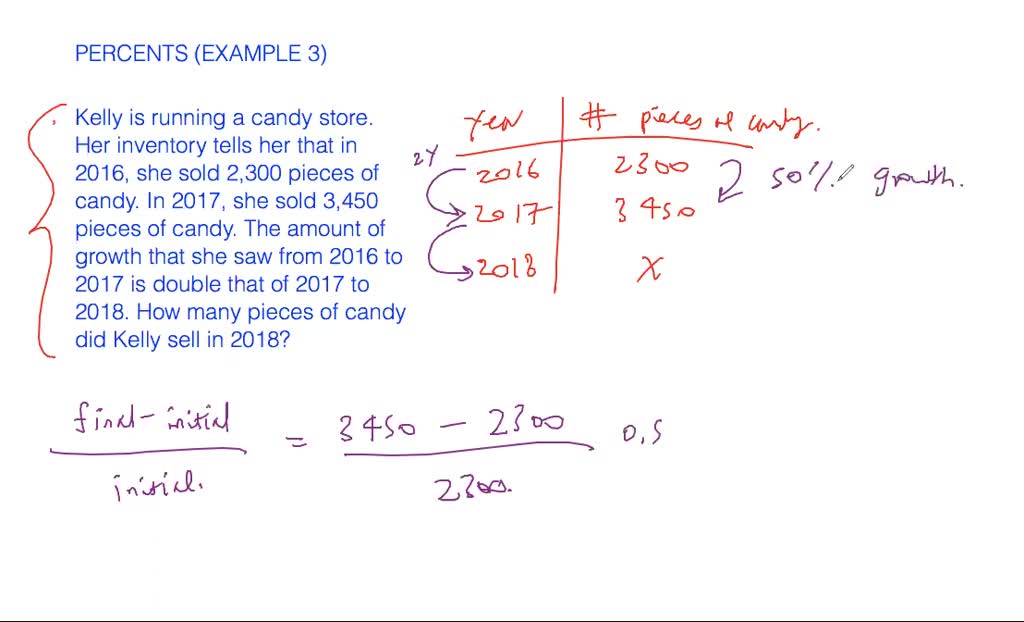 PERCENTS (EXAMPLE 3)
Kelly is running a candy store.
Her inventory tells her that in
2016, she sold 2,300 pieces of
candy. In 2017, she sold 3,450
pieces of candy. The amount of
growth that she saw from 2016 to
2017 is double that of 2017 to
2018. How many pieces of candy
did Kelly sell in 2018?
Year # pieces of candy.
2016 2300
2017 3450
2018 X
50% growth.
final - initial = 3450 - 2300 0,5
initial. 2300.